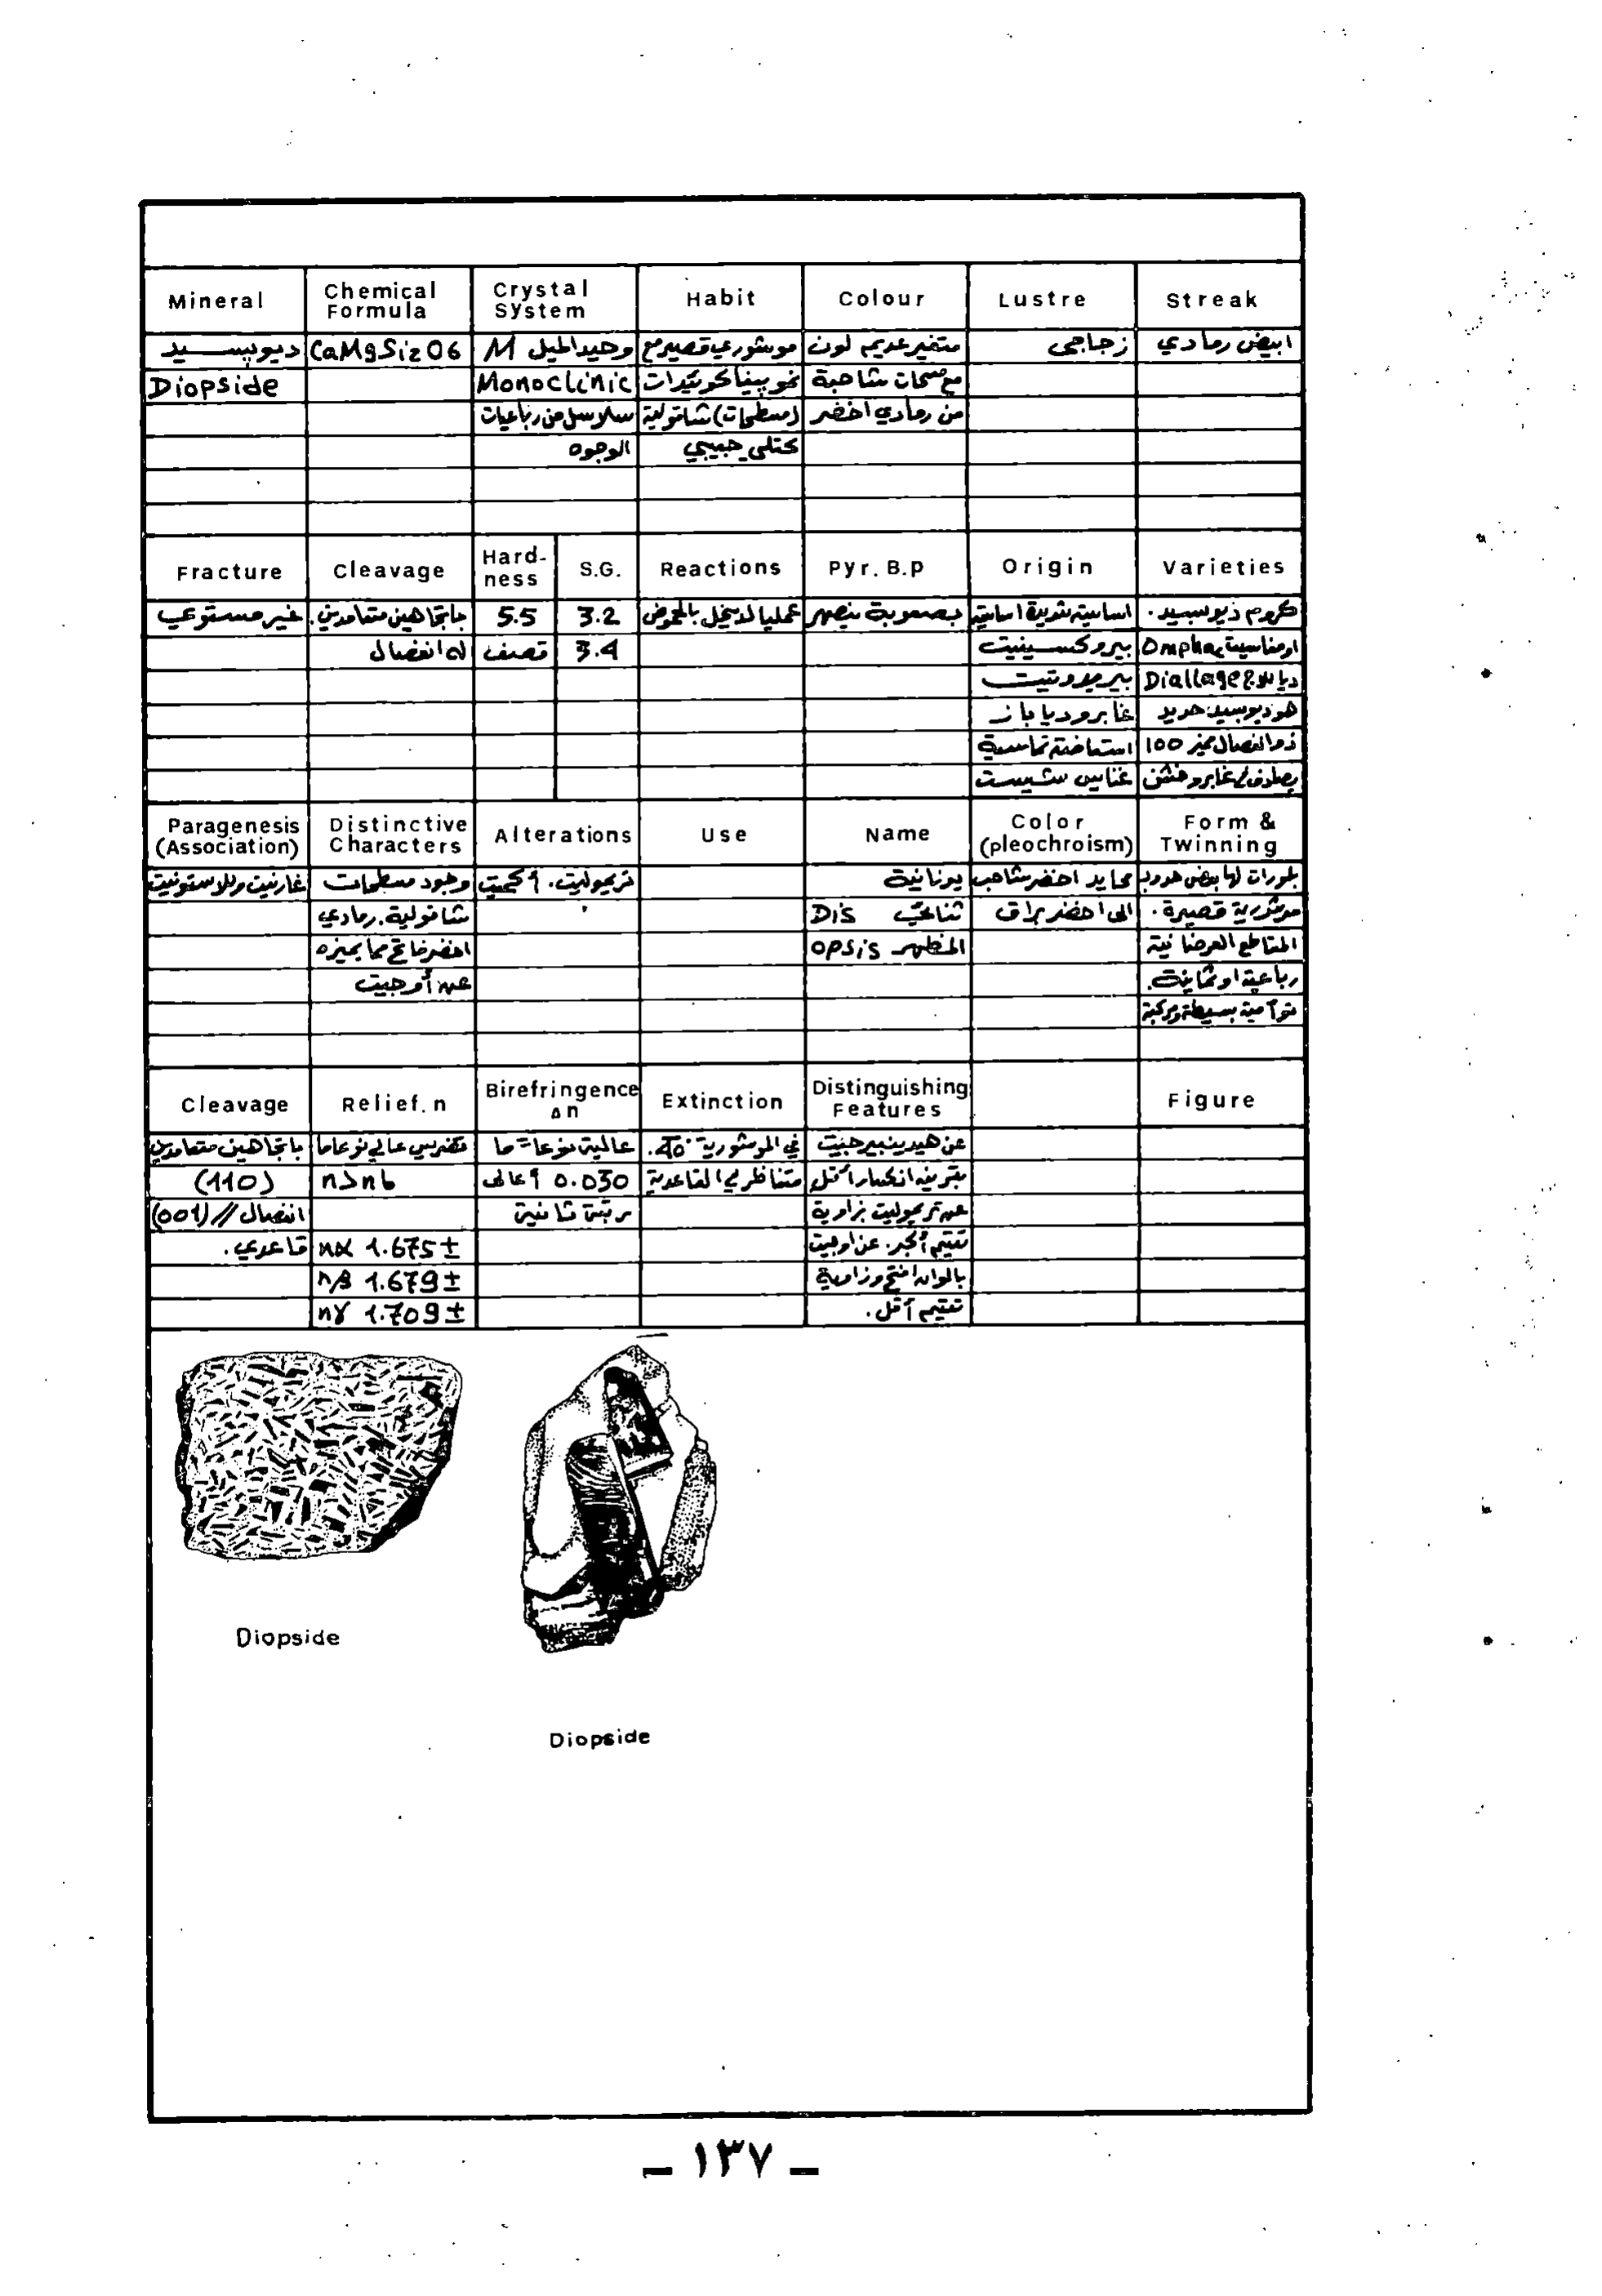 Mineral | Chemical Formula | Crystal System | Habit | Colour | Lustre | Streak
ديوبسيد | CaMgSi2O6 | وحيد الميل M | موشوري قصير مع | متغير عديم لون | زجاجي | ابيض رمادي
Diopside | | Monoclinic | نمو بيناكوئيدات | مع مسحات شاحبة
سلاسل من رباعيات | (مسطحات) شاقولية | من رمادي اخضر
الوجوه | كتلي حبيبي
Fracture | Cleavage | Hard-ness | S.G. | Reactions | Pyr. B.p | Origin | Varieties
غير مستوي | باتجاهين متعامدين. | 5.5 | 3.2 | عمليا لا ينحل بالحموض | بصعوبة ينصهر | اساسية شديدة اساسية | كروم ديوبسيد.
له انفصال | قصف | 3.4 | بيروكسينيت | اومفاسيت Ompha
بيريدوتيت | ديالاج Diallage
غابرو ديا باز | هو ديوبسيد حديد
استعاضة تماسية | ذو انفصال مميز 100
غنايس شيست | يصادف في غابرو خشن
Paragenesis (Association) | Distinctive Characters | Alterations | Use | Name | Color (pleochroism) | Form & Twinning
غارنيت وللاستونيت | وجود مسطحات | تريموليت. | | يونانية | محايد اخضر شاحب | بلورات لها بعض حدود
شاقولية. رمادي | Dis ثنائي | الى اخضر براق | موشورية قصيرة.
اخضر فاتح مما يميزه | opsis المظهر | المقاطع العرضانية
عن أوجيت | رباعية او ثمانية.
توآمية بسيطة ومركبة
Cleavage | Relief. n | Birefringence Δn | Extinction | Distinguishing Features | | Figure
باتجاهين متعامدين | تضريس عالي نوعا ما | عالية نوعا ما | في الموشورية 40°. | عن هيدينبيرجيت
(110) | n>nb | 0.030 ألوان | متناظر في القاعدية | بقرينة انكسار أقل
انفصال // (001) | | رتبة ثانية | | عن تريموليت بزاوية
قاعدي. | nα 1.675± | تعتيم أكبر. عن اوجيت
nβ 1.679± | بالوان افتح وزاوية
nγ 1.709± | تعتيم أقل.
Diopside
Diopside
- ١٣٧ -